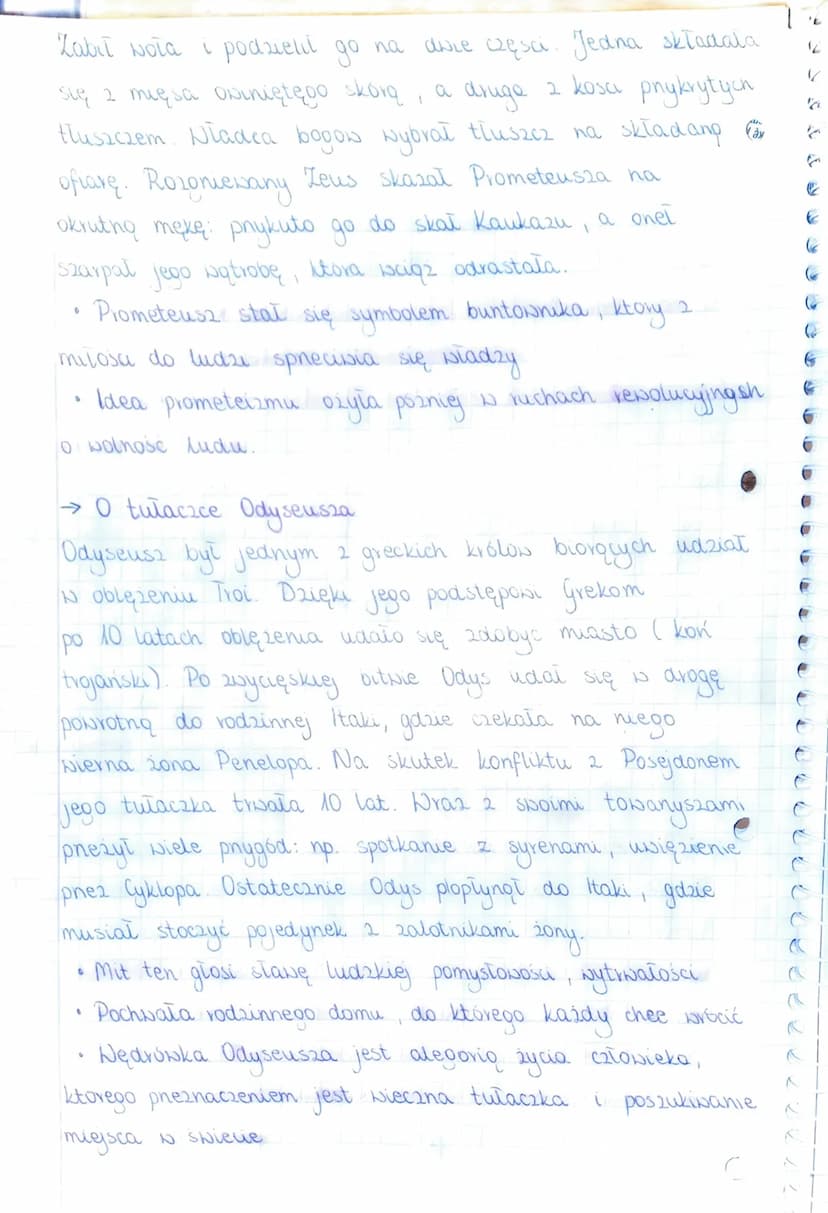 Zabił woła i podzielił go na dwie części. Jedna składała
się z mięsa owiniętego skórą, a druga z kości przykrytych
tłuszczem. Władca bogów wybrał tłuszcz na składaną
ofiarę. Rozgniewany Zeus skazał Prometeusza na
okrutną mękę: przykuto go do skał Kaukazu, a orzeł
szarpał jego wątrobę, która wciąż odrastała.
• Prometeusz stał się symbolem buntownika, który z
miłości do ludzi sprzeciwia się władzy
• Idea prometeizmu ożyła później w ruchach rewolucyjnych
o wolność ludu.
→ O tułaczce Odyseusza
Odyseusz był jednym z greckich królów biorących udział
w oblężeniu Troi. Dzięki jego podstępowi Grekom
po 10 latach oblężenia udało się zdobyć miasto (koń
trojański). Po zwycięskiej bitwie Odys udał się w drogę
powrotną do rodzinnej Itaki, gdzie czekała na niego
wierna żona Penelopa. Na skutek konfliktu z Posejdonem
jego tułaczka trwała 10 lat. Wraz z swoimi towarzyszami
przeżył wiele przygód: np. spotkanie z syrenami, uwięzienie
przez Cyklopa. Ostatecznie Odys plopłynął do Itaki, gdzie
musiał stoczyć pojedynek z zalotnikami żony.
• Mit ten głosi sławę ludzkiej pomysłowości, wytrwałości
• Pochwała rodzinnego domu, do którego każdy chce wrócić
• Wędrówka Odyseusza jest alegorią życia człowieka,
którego przeznaczeniem jest wieczna tułaczka i poszukiwanie
miejsca w świecie